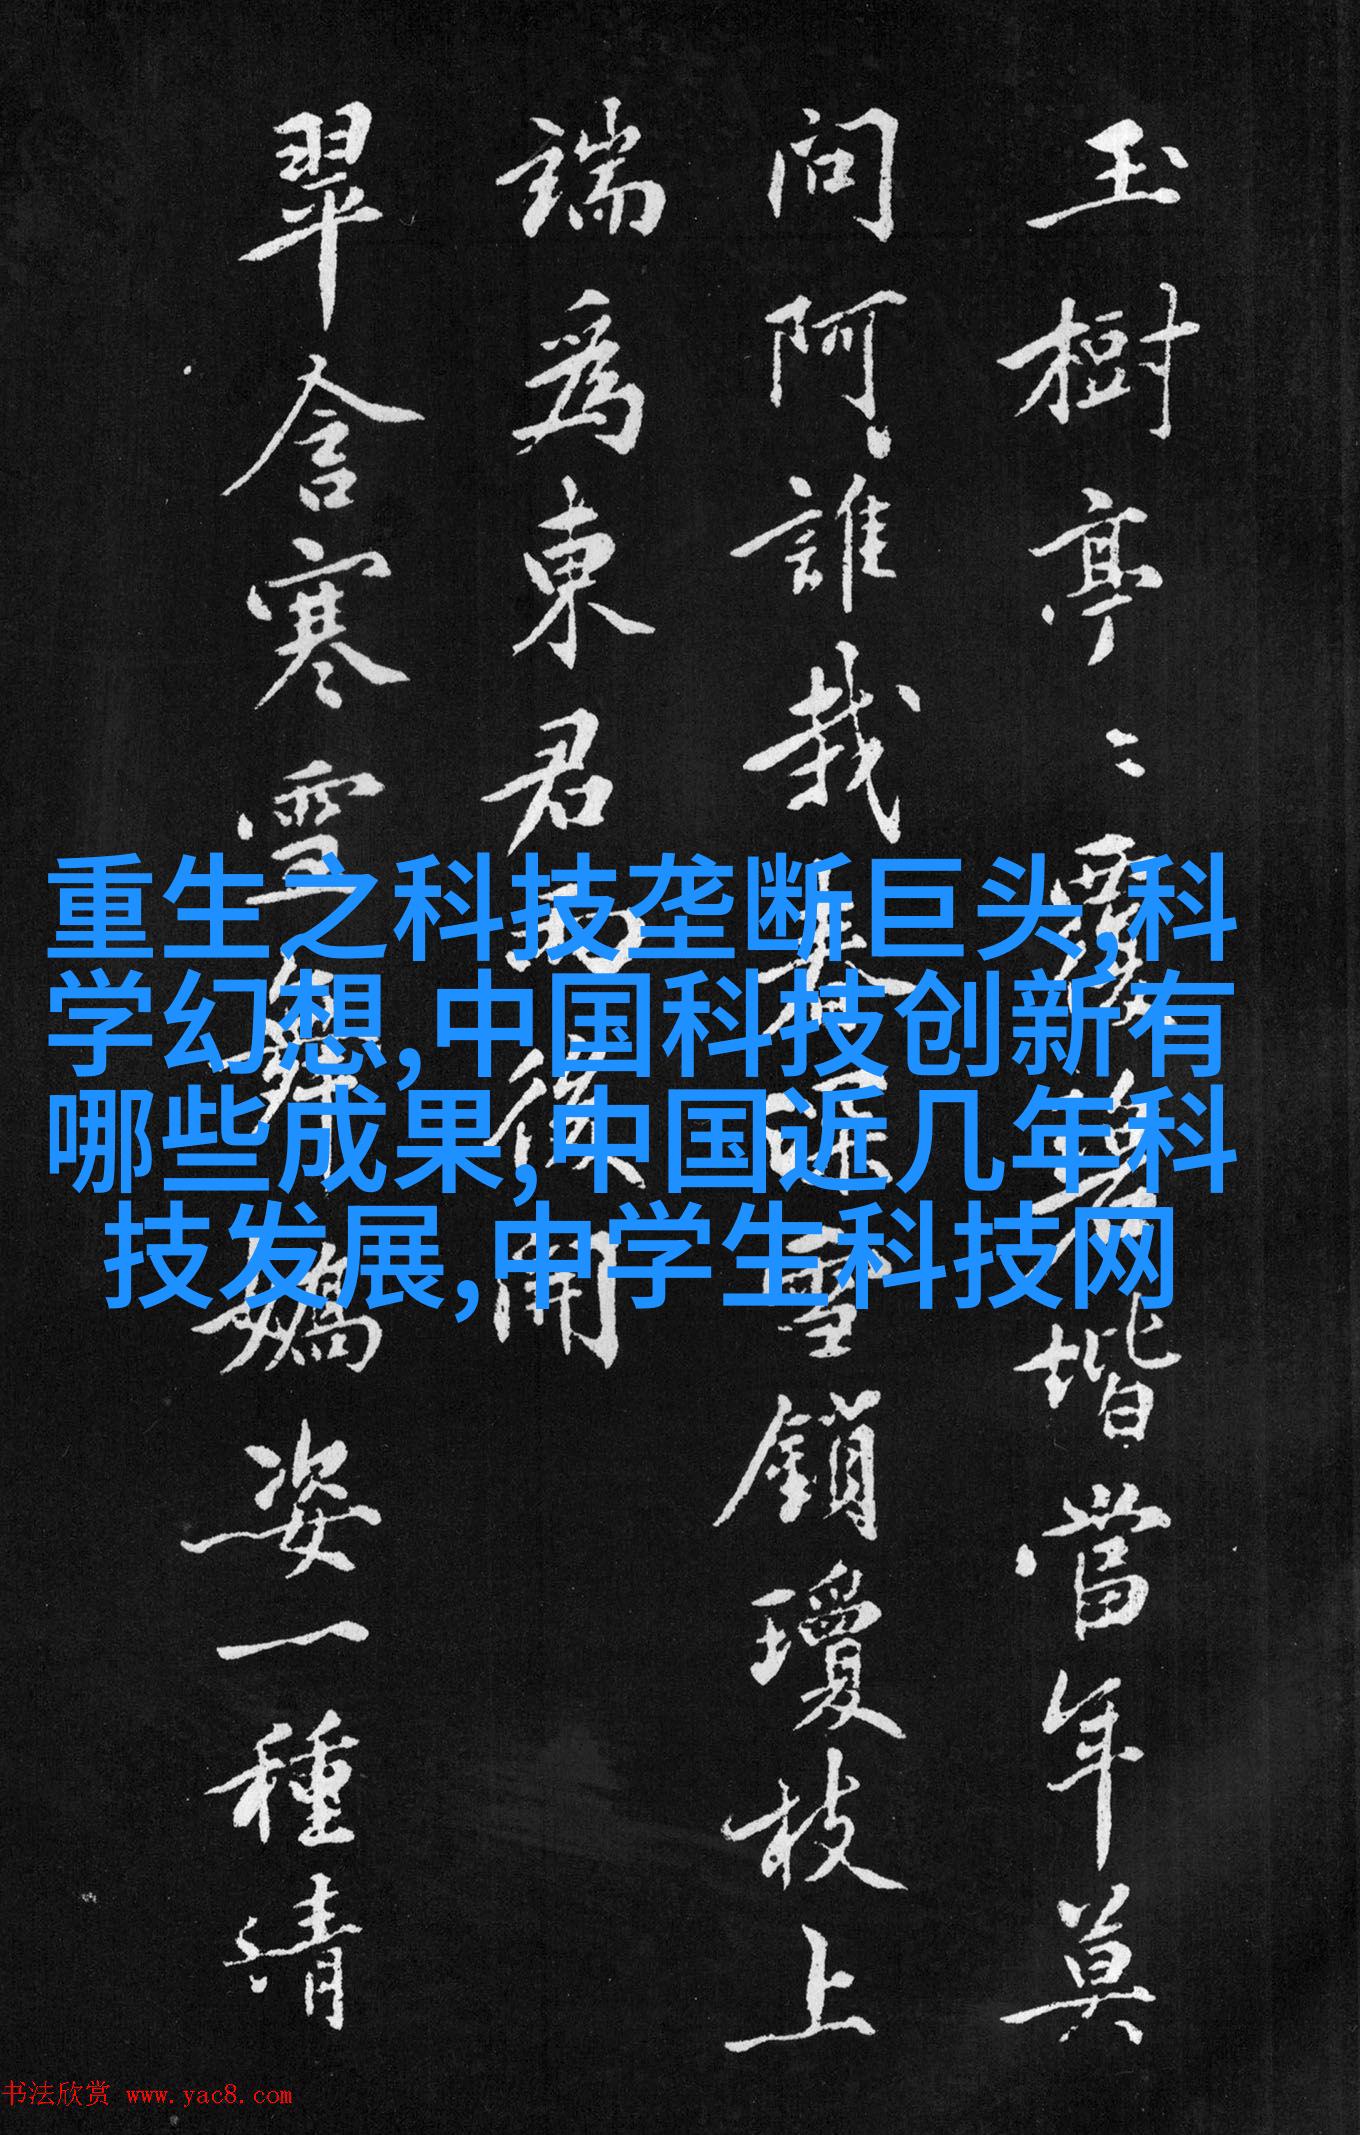 玉樹亭〻覆碧堦當年莫
問阿誰栽春深雪鎖瓊枝上
端爲東君雨後開
翠含寒雪舞嬌姿一種清
重生之科技垄断巨头,科
学幻想,中国科技创新有
哪些成果,中国近几年科
技发展,中学生科技网
书法欣赏 www.yac8.com